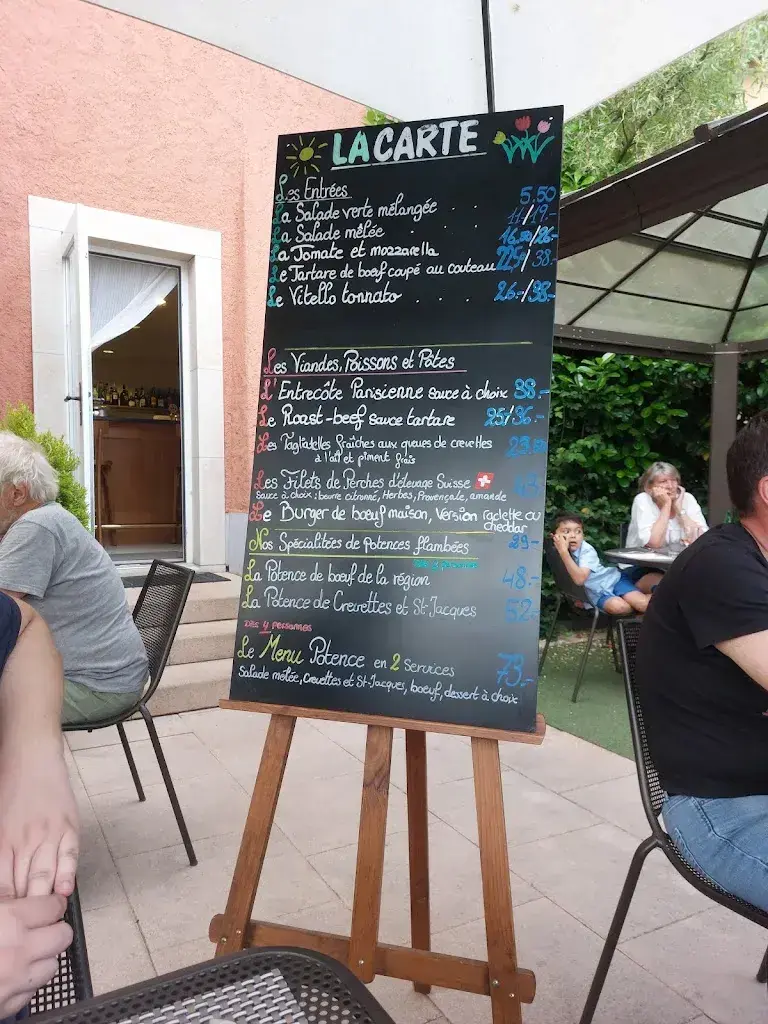 LA CARTE
Les Entrées
La Salade verte mélangée . . . 5.50
La Salade mêlée . . . 11/19.-
La Tomate et mozzarella 16.50/26.-
Le Tartare de bœuf coupé au couteau / 38.-
Le Vitello tonnato . . . . 26.-/38.-
Les Viandes, Poissons et Pâtes
L'Entrecôte Parisienne sauce à choix 38.-
Le Roast-beef sauce tartare 25/36.-
Les Tagliatelles fraîches aux queues de crevettes 29.50
à l'ail et piment frais
Les Filets de Perches d'élevage Suisse 43.-
Sauce à choix : beurre citronné, Herbes, Provençale, amande
Le Burger de bœuf maison, Version raclette ou
cheddar
Nos Spécialitées de potences flambées 29.-
La Potence de bœuf de la région 48.-
La Potence de Crevettes et St-Jacques 52.-
Dès 4 personnes
Le Menu Potence en 2 Services 73.-
Salade mêlée, Crevettes et St-Jacques, bœuf, dessert à choix